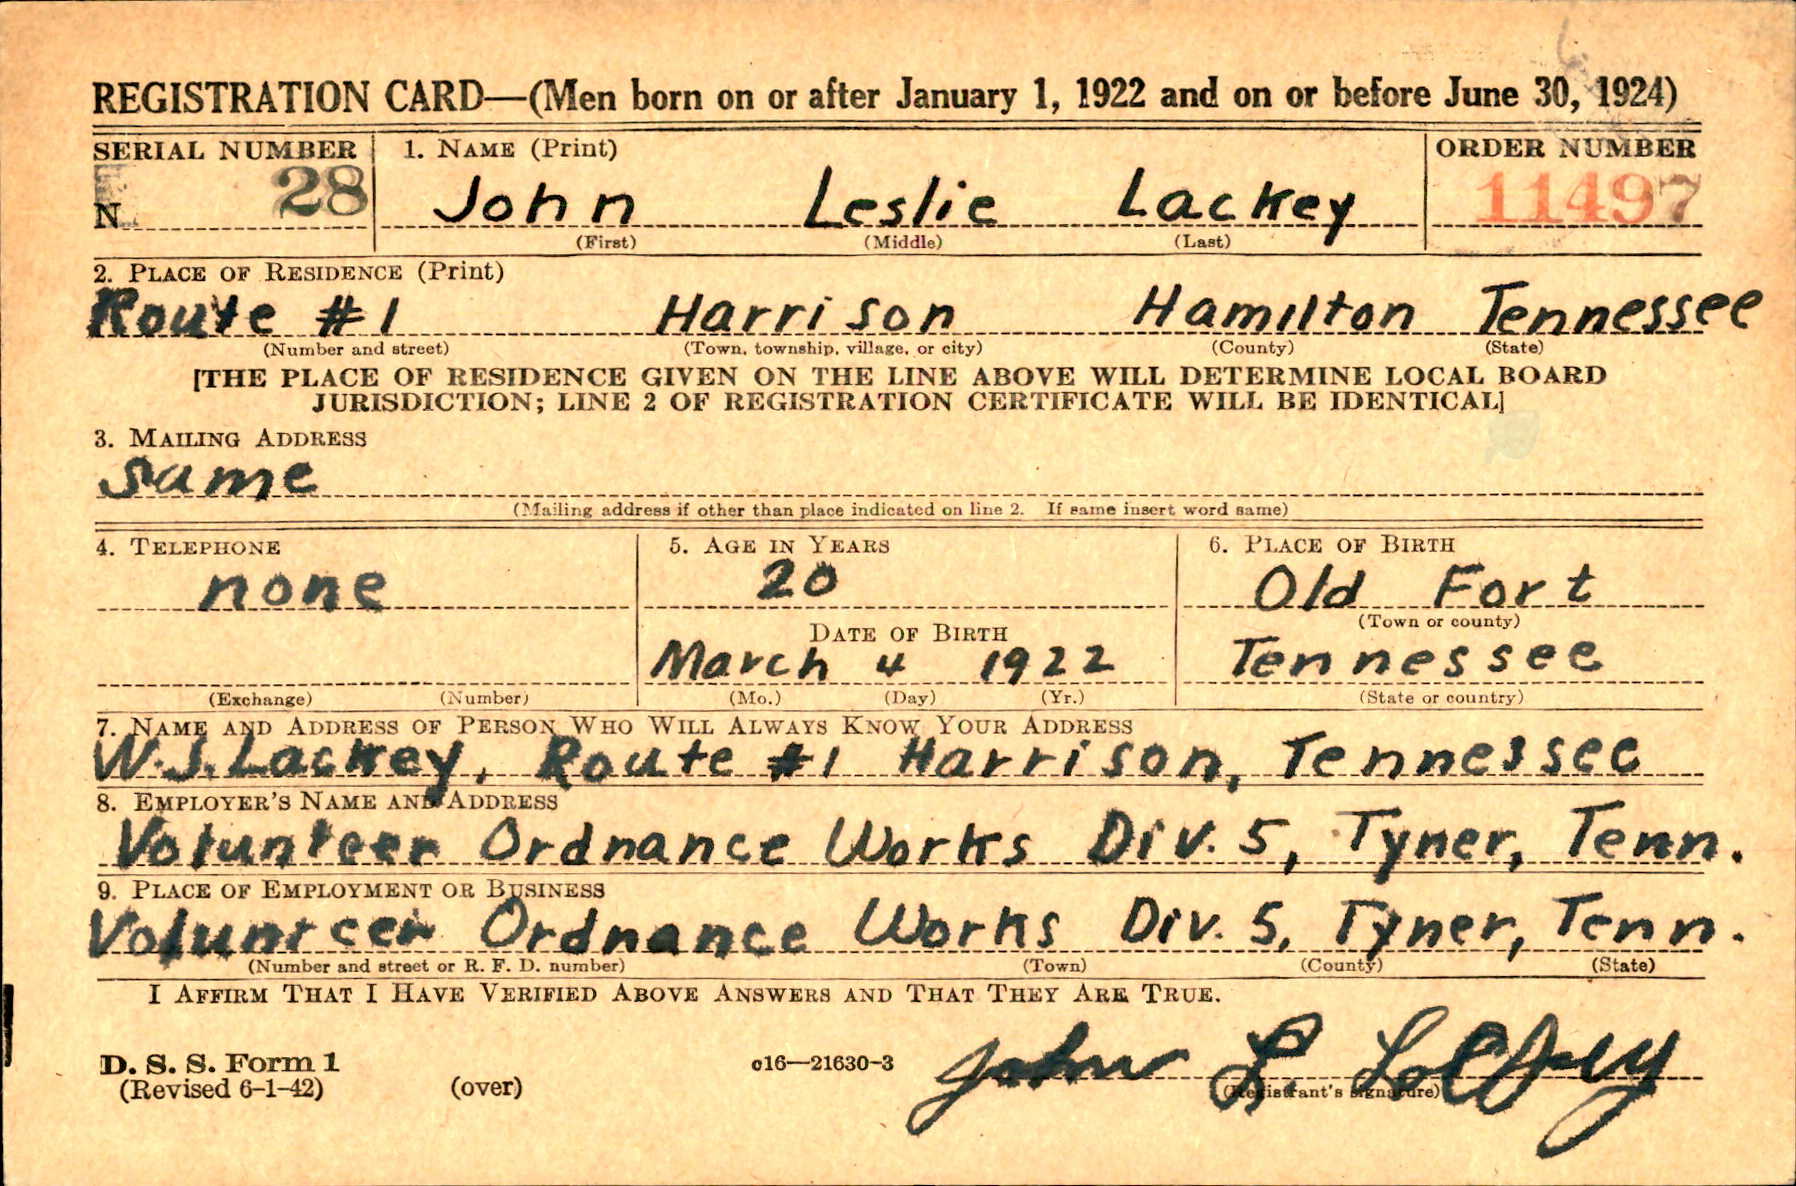 REGISTRATION CARD—(Men born on or after January 1, 1922 and on or before June 30, 1924)
SERIAL NUMBER 1. NAME (Print) ORDER NUMBER
N 28 John Leslie Lackey 11497
(First) (Middle) (Last)
2. PLACE OF RESIDENCE (Print)
Route #1 Harrison Hamilton Tennessee
(Number and street) (Town, township, village, or city) (County) (State)
[THE PLACE OF RESIDENCE GIVEN ON THE LINE ABOVE WILL DETERMINE LOCAL BOARD
JURISDICTION; LINE 2 OF REGISTRATION CERTIFICATE WILL BE IDENTICAL]
3. MAILING ADDRESS
Same
(Mailing address if other than place indicated on line 2. If same insert word same)
4. TELEPHONE 5. AGE IN YEARS 6. PLACE OF BIRTH
none 20 Old Fort
(Town or county)
DATE OF BIRTH
March 4 1922 Tennessee
(Exchange) (Number) (Mo.) (Day) (Yr.) (State or country)
7. NAME AND ADDRESS OF PERSON WHO WILL ALWAYS KNOW YOUR ADDRESS
W.J. Lackey, Route #1 Harrison, Tennessee
8. EMPLOYER'S NAME AND ADDRESS
Volunteer Ordnance Works Div. 5, Tyner, Tenn.
9. PLACE OF EMPLOYMENT OR BUSINESS
Volunteer Ordnance Works Div. 5, Tyner, Tenn.
(Number and street or R. F. D. number) (Town) (County) (State)
I AFFIRM THAT I HAVE VERIFIED ABOVE ANSWERS AND THAT THEY ARE TRUE.
D. S. S. Form 1
(Revised 6-1-42) (over) c16—21630-3 John L. Lackey
(Registrant's signature)